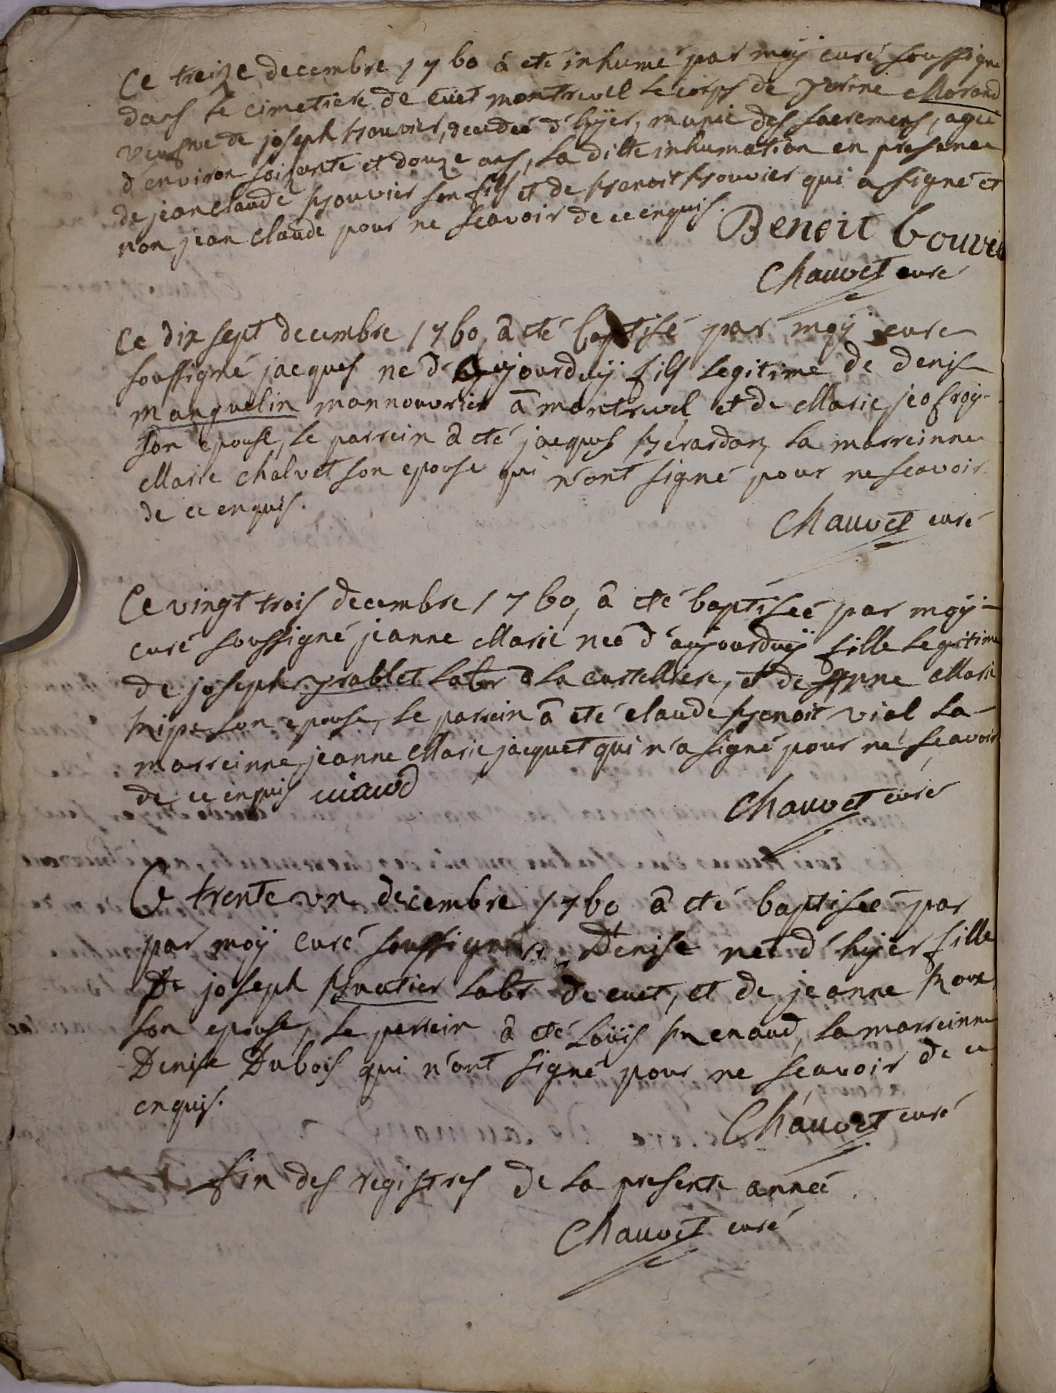 Ce treize decembre 1760 â eté inhumé par moÿ curé soussigné
dans le cimetiere de cüet montrevel le corps de perine Morand
veufve de joseph bouvier, decedeé d'hÿer, munie des sacremens, ageé
d'environ soisente et douze ans, la ditte inhumation en presence
de jean claude bouvier son fils et de benoit bouvier qui a signé et
non jean claude pour ne scavoir de ce enquis.
Benoit bouvie
Chauvet curé
Ce dix sept decembre 1760, â eté baptisé par moÿ curé
soussigné jacques né d'aujourduÿ fils legitime de denis
manguelin mannouvrier â montrevel et de Marie jeofroy
son epouse, le parrein â eté jacques bérardan, la marreinne
Marie Chalvet son epouse qui n'ont signé pour ne scavoir
de ce enquis.
Chauvet curé
Ce vingt trois decembre 1760, â eté baptiseé par moÿ
curé soussigné jeanne Marie neé d'aujourduÿ fille legitime
de joseph prablet labr â la curtelliere, et de Marie
son epouse, le parrein â eté claude benoit viol la
marreinne jeanne Marie jacquet qui n'a signé pour ne scavoir
de ce enquis
Chauvet curé
Ce trente un decembre 1760 â eté baptiseé par
par moÿ curé soussigné Denise neé d'hÿer fille
De joseph labr de cuet, et de jeanne
son epouse, le perrein â eté Loüis Renaud, la marreinne
Denise Dubois qui n'ont signé pour ne scavoir de ce
enquis.
Chauvet curé
fin des registres de la presente anneé
Chauvet curé